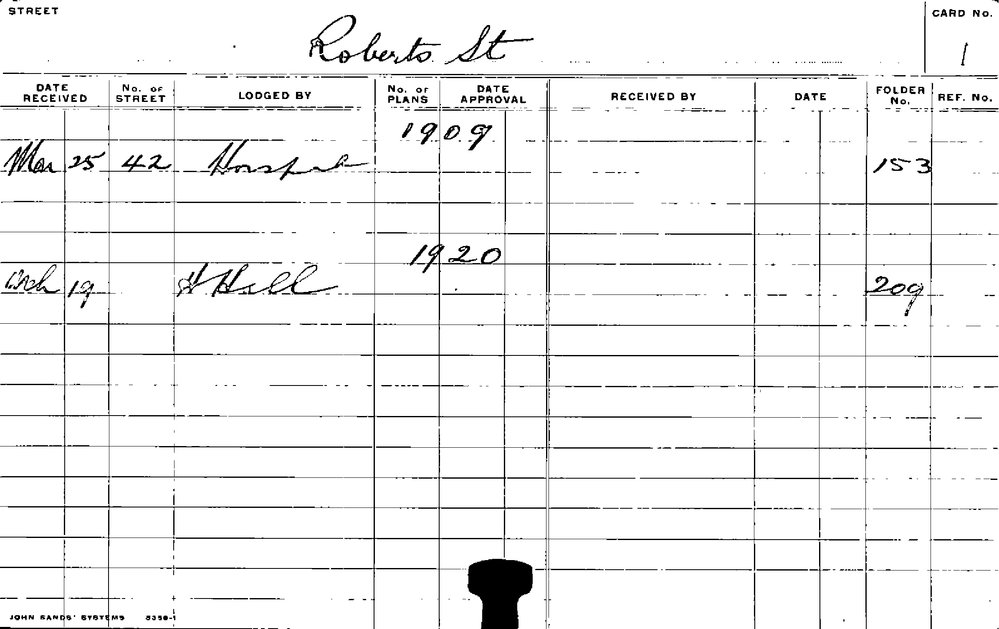 STREET
Roberts St
CARD No.
1
DATE RECEIVED No. OF STREET LODGED BY No. OF PLANS DATE APPROVAL RECEIVED BY DATE FOLDER No. REF. No.
1909
Mar 25 42 153
1920
19 H Hill 209
JOHN SANDS' SYSTEMS 8350-1